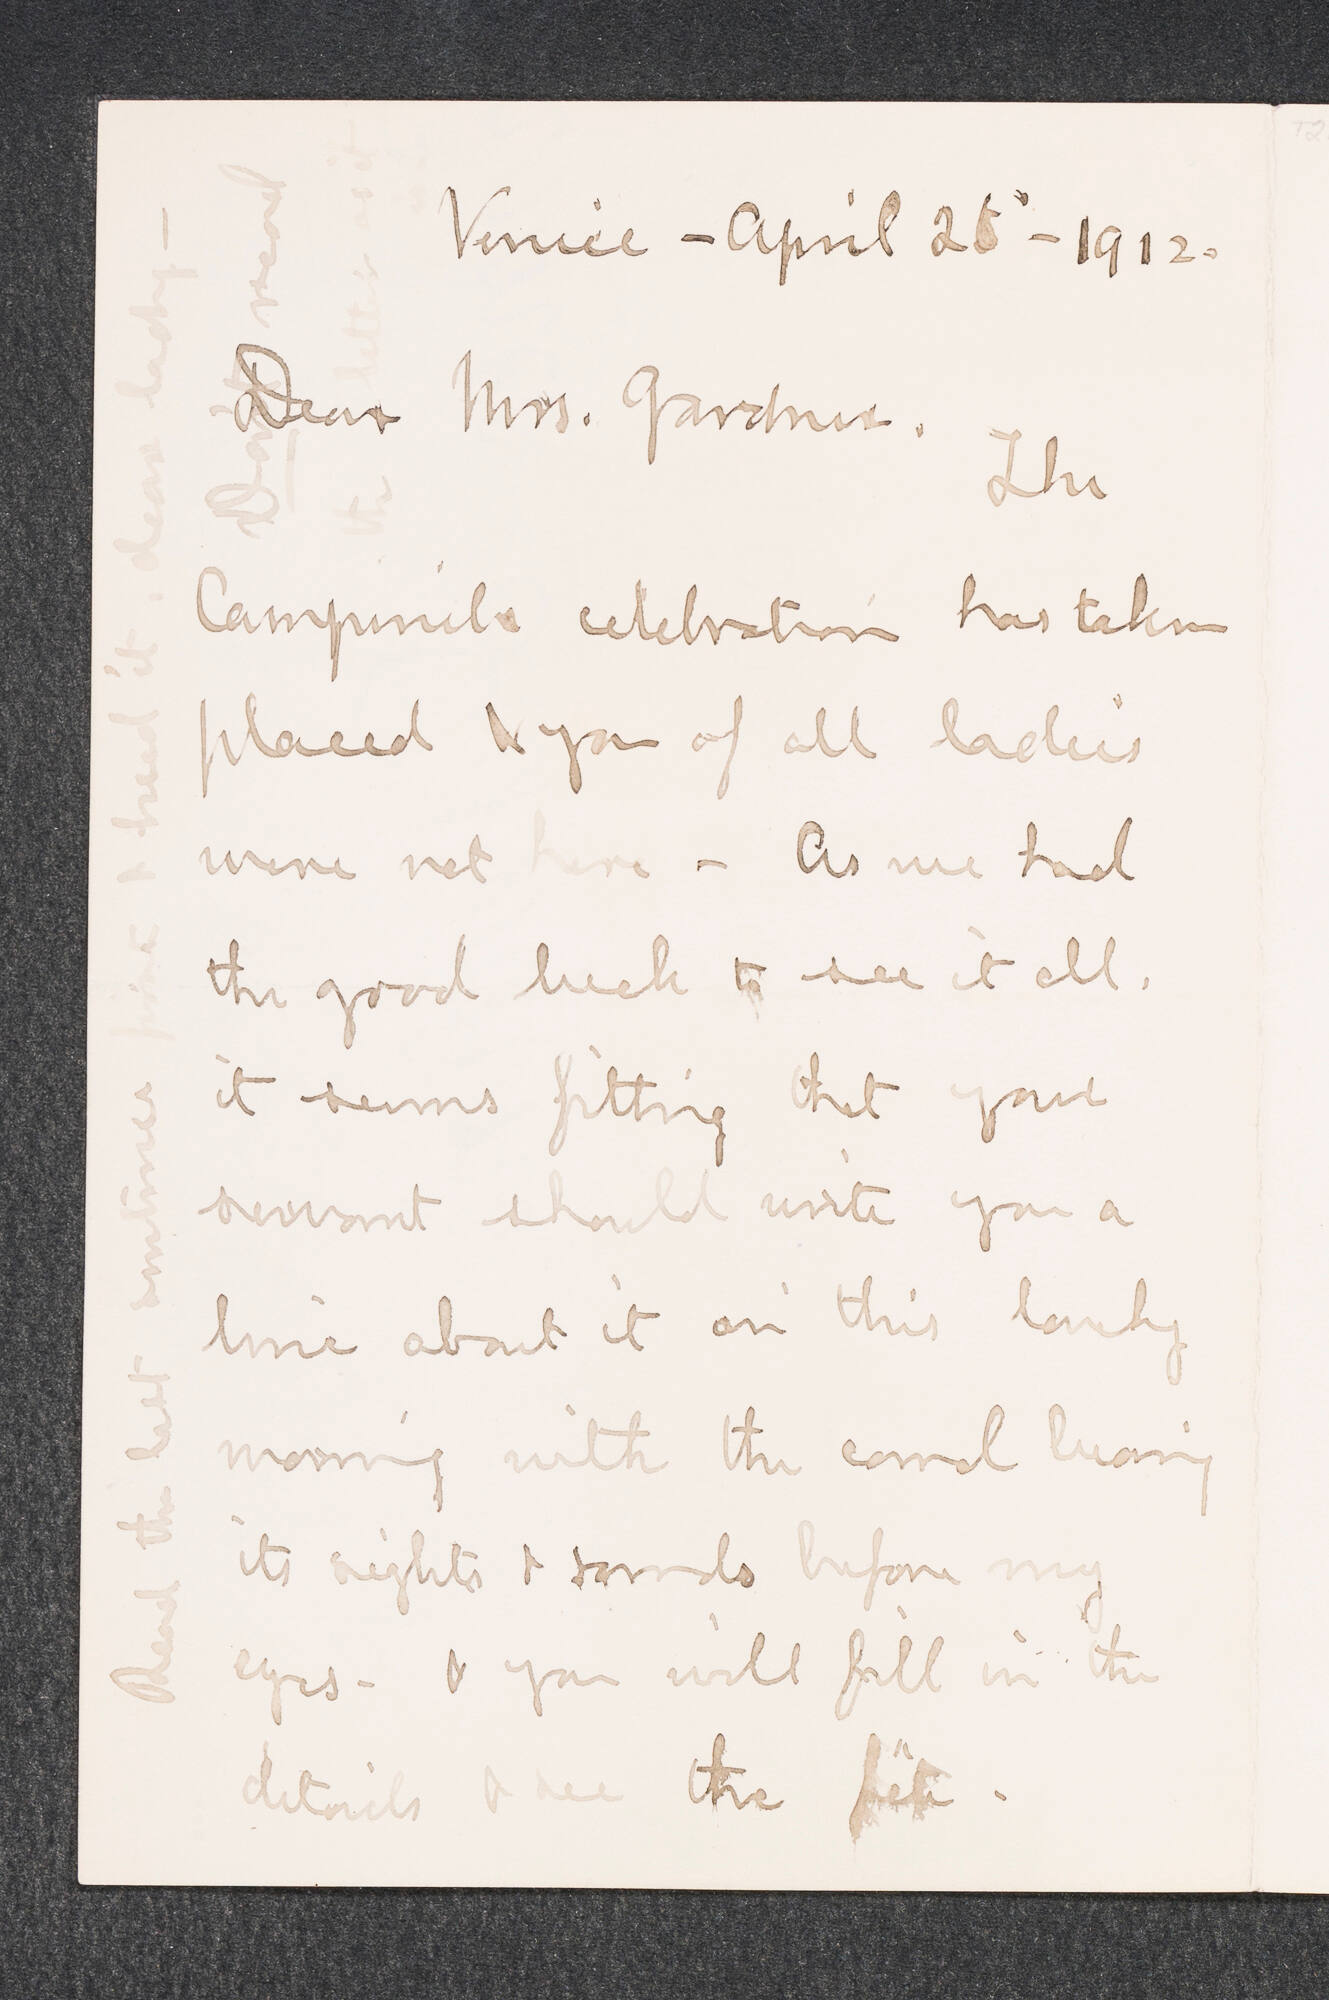 Venice - April 26 - 1912.
Dear Mrs. Gardner.
The
Campinile celebration has taken
placed & you of all ladies
were not here - As we had
the good luck to see it all,
it seems fitting that your
servant should write you a
line about it on this lovely
morning with the canal buoying
its sights & sounds before my
eyes - & you will fill in the
details & see the fête.
Read the last sentences first & heed it, dear lady -
Don't read
the letter as it